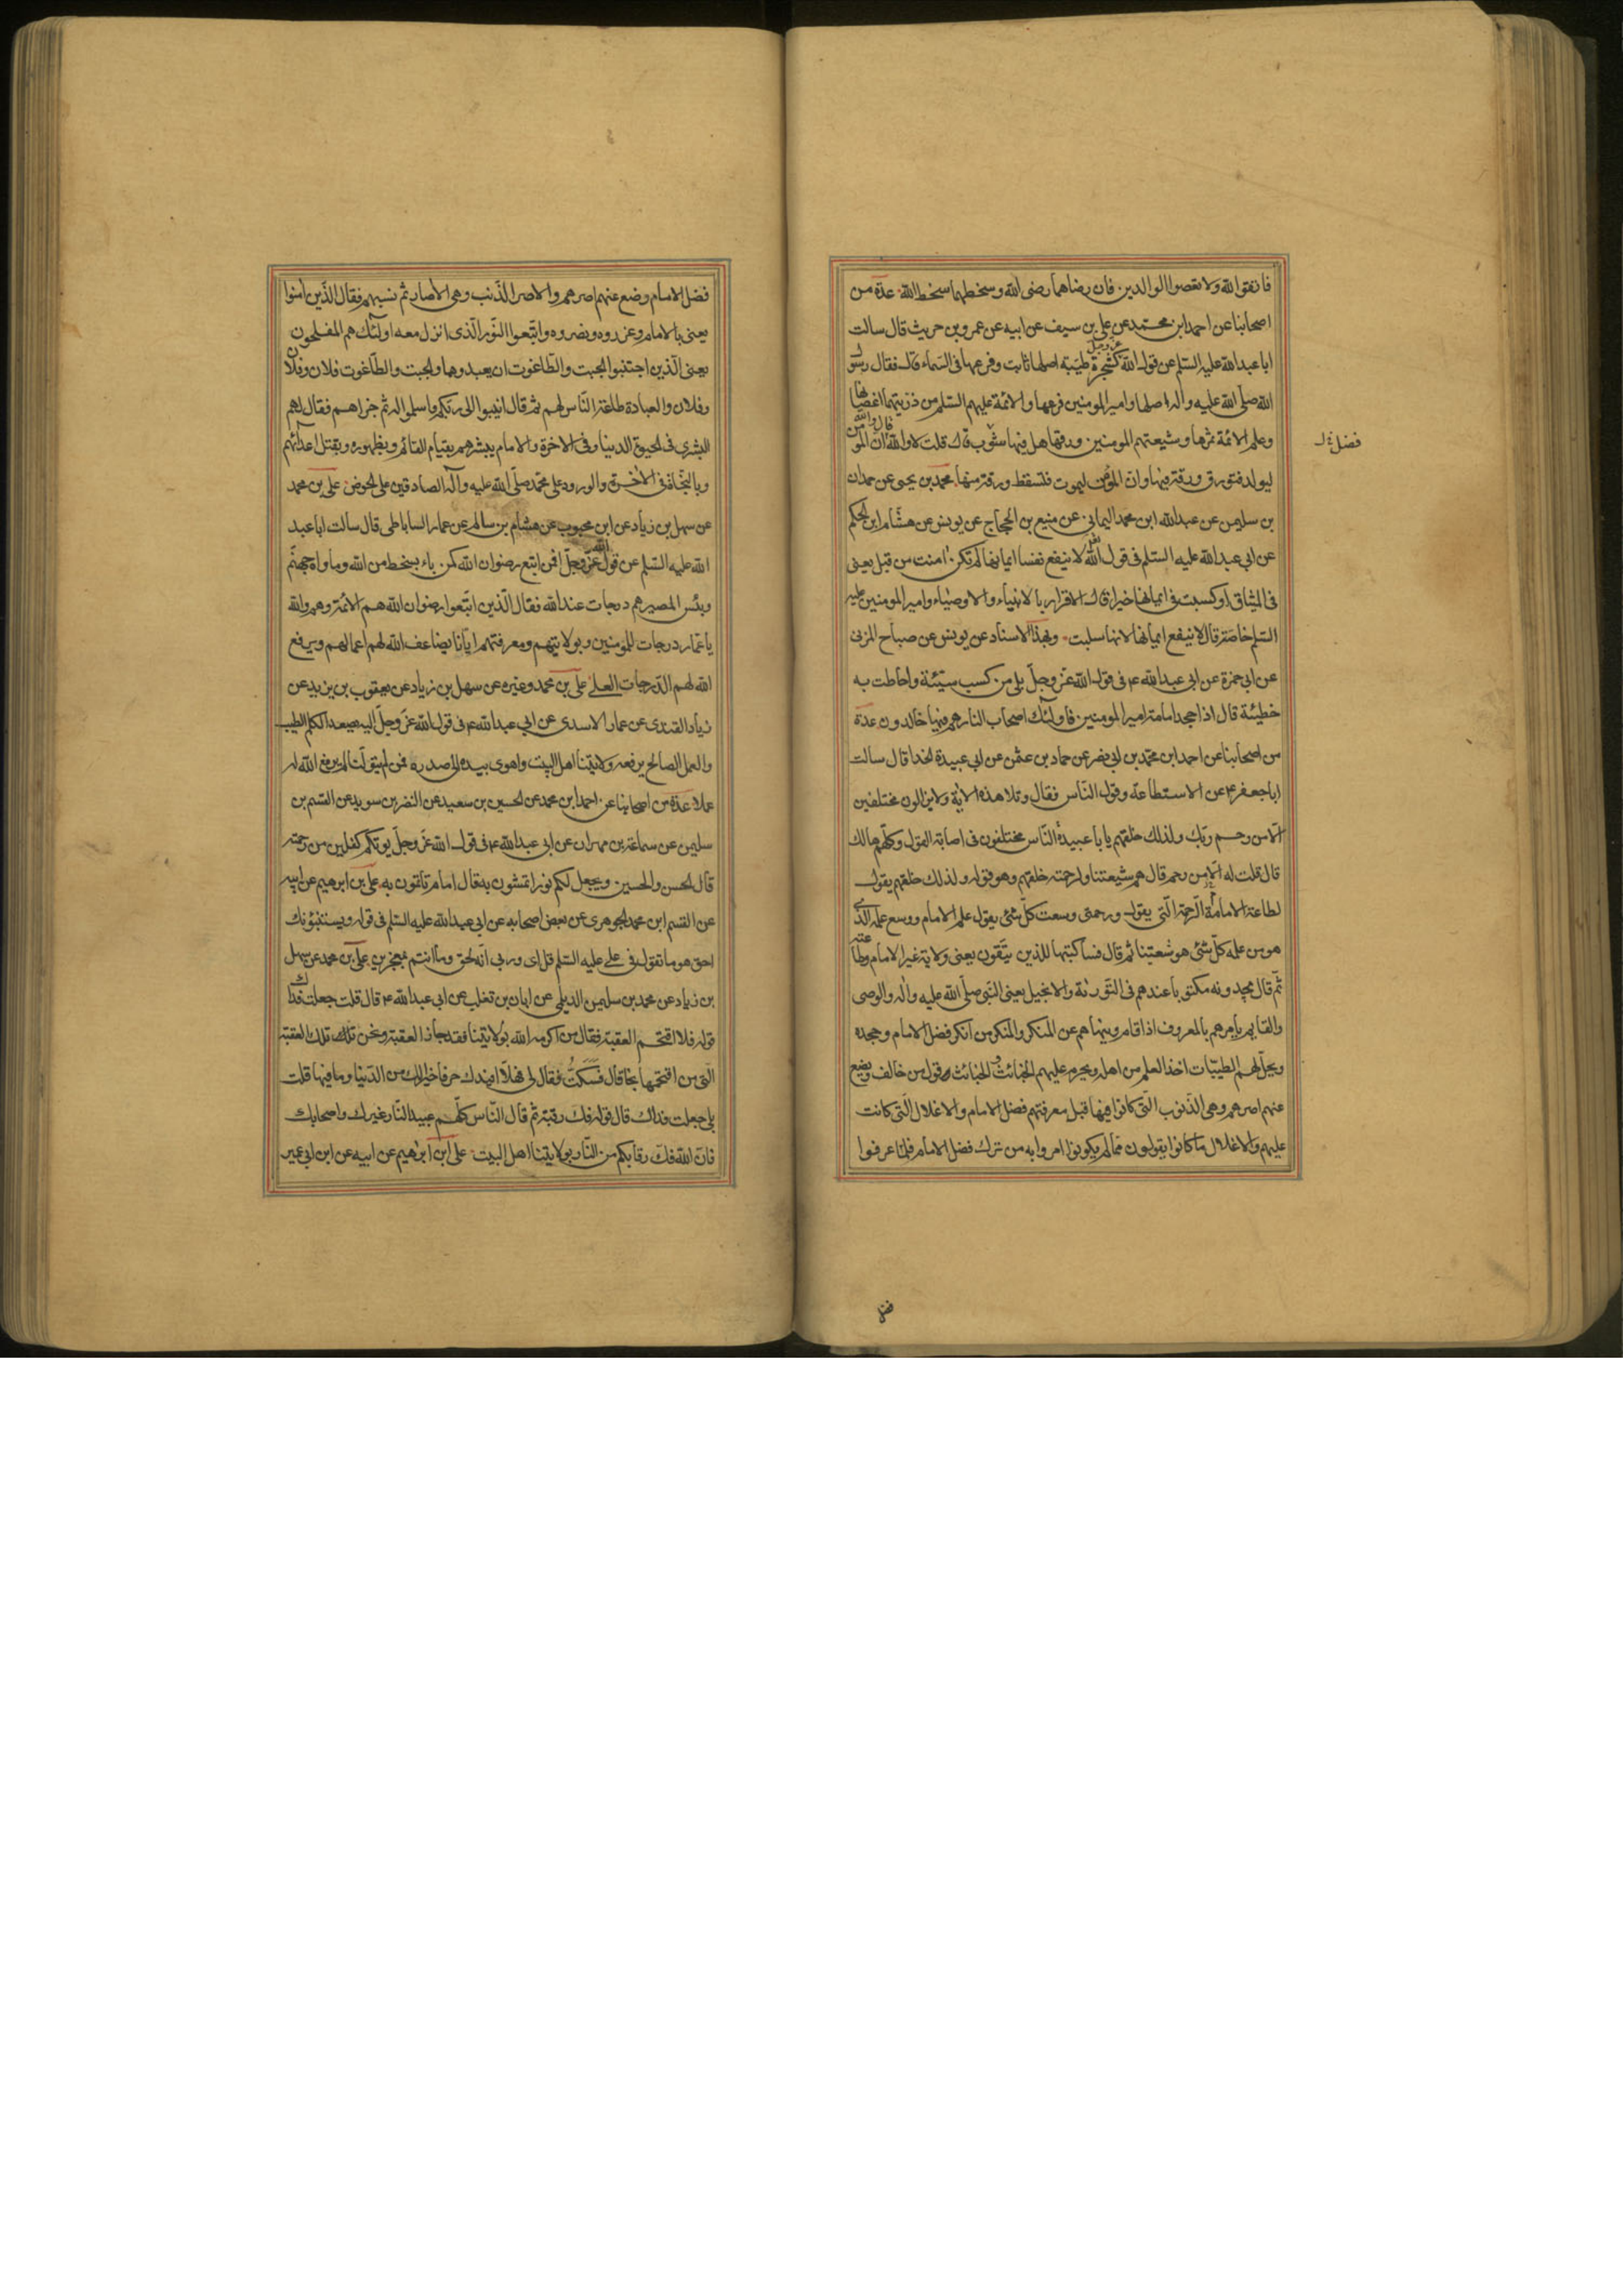 فاتقوا الله ولا تعصوا الوالدين فان رضاهما رضى الله وسخطهما سخط الله عدة من
اصحابنا عن احمد ابن محمد عن على بن سيف عن ابيه عن عمرو بن حريث قال سالت
ابا عبد الله عليه السلم عن قول الله عز وجل كشجرة طيبة اصلها ثابت وفرعها فى السماء قال فقال رسول
الله صلى الله عليه وآله اصلها وامير المومنين فرعها والائمة عليهم السلم من ذريتهما اغصانها
وعلم الائمة ثمرها وشيعتهم المومنين ورقها هل فيها شوب قال قلت لا والله قال والله ان المومن
فضل خ ل
ليولد فتورق ورقة فيها وان المومن ليموت فتسقط ورقة منها محمد بن يحيى عن حمدان
بن سليمن عن عبد الله ابن محمد اليمانى عن منيع بن الحجاج عن يونس عن هشام ابن الحكم
عن ابى عبد الله عليه السلم فى قول الله لا ينفع نفسا ايمانها لم تكن امنت من قبل يعنى
فى الميثاق او كسبت فى ايمانها خيرا قال الاقرار بالانبياء والاوصياء وامير المومنين عليه
السلم خاصة قال لا ينفع ايمانها لانها سلبت وبهذا الاسناد عن يونس عن صباح المزنى
عن ابى حمزة عن ابى عبد الله ع فى قول الله عز وجل بلى من كسب سيئة واحاطت به
خطيئة قال اذا جحد امامة امير المومنين فاولئك اصحاب النار هم فيها خالدون عدة
من اصحابنا عن احمد ابن محمد بن ابى نصر عن حماد بن عثمن عن ابى عبيدة الحذا قال سالت
ابا جعفر ع عن الاستطاعة وقول الناس فقال وتلا هذه الاية ولا يزالون مختلفين
الا من رحم ربك ولذلك خلقهم يابا عبيدة الناس مختلفون فى اصابة القول وكلهم هالك
قال قلت له الا من رحم قال هم شيعتنا ولرحمته خلقهم وهو قوله ولذلك خلقهم يقول
لطاعة الامام الرحمة التى يقول ورحمتى وسعت كل شئ يقول علم الامام ووسع علمه الذى
هو من علمه كل شئ هو شعيتنا ثم قال فساكتبها للذين يتقون يعنى ولاية غير الامام وطاعته
ثم قال يجدونه مكتوبا عندهم فى التورية والانجيل يعنى النبى صلى الله عليه واله والوصى
والقايم يامرهم بالمعروف اذا قام وينهاهم عن المنكر والمنكر من انكر فضل الامام وجحده
ويحل لهم الطيبات اخذ العلم من اهله ويحرم عليهم الخبائث والخبائث قول من خالف ويضع
عنهم اصرهم وهى الذنوب التى كانوا فيها قبل معرفتهم فضل الامام والاغلال التى كانت
عليهم والاغلال ما كانوا يقولون مما لم يكونوا امروا به من ترك فضل الامام فلما عرفوا
فضل الامام وضع عنهم اصرهم والاصر الذنب وهى الاصار ثم نسبهم فقال الذين امنوا
يعنى بالامام وعزروه ونصروه واتبعوا النور الذى انزل معه اولئك هم المفلحون
يعنى الذين اجتنبوا الجبت والطاغوت ان يعبدوها والجبت والطاغوت فلان وفلان
وفلان والعبادة طاعة الناس لهم ثم قال انيبوا الى ربكم واسلموا له ثم جزاهم فقال لهم
البشرى فى الحيوة الدنيا وفى الاخرة والامام يبشرهم بقيام القائم وبظهوره وبقتل اعدائهم
وبالنجاة فى الاخرة والورود على محمد صلى الله عليه وآله الصادقين على الحوض على بن محمد
عن سهل بن زياد عن ابن محبوب عن هشام بن سالم عن عمار الساباطى قال سالت ابا عبد
الله عليه السلم عن قول الله عز وجل افمن اتبع رضوان الله كمن باء بسخط من الله وماواه جهنم
وبئس المصير هم درجات عند الله فقال الذين اتبعوا رضوان الله هم الائمة وهم والله
يا عمار درجات للمؤمنين وبولايتهم ومعرفتهم ايانا يضاعف الله لهم اعمالهم ويرفع
الله لهم الدرجات العلى على بن محمد وغيره عن سهل بن زياد عن يعقوب بن يزيد عن
زياد القندى عن عمار الاسدى عن ابى عبد الله ع فى قول الله عز وجل اليه يصعد الكلم الطيب
والعمل الصالح يرفعه ولايتنا اهل البيت واهوى بيده الى صدره فمن لم يتولنا لم يرفع الله له
عملا عدة من اصحابنا عن احمد ابن محمد عن الحسين بن سعيد عن النضر بن سويد عن القسم بن
سليمن عن سماعة بن مهران عن ابى عبد الله ع فى قول الله عز وجل يوتكم كفلين من رحمته
قال الحسن والحسين ويجعل لكم نورا تمشون به قال امام تاتمون به على بن ابرهيم عن ابيه
عن القسم ابن محمد الجوهرى عن بعض اصحابه عن ابى عبد الله عليه السلم فى قوله ويستنبؤنك
احق هو ما تقول فى على عليه السلم قل اى وربى انه لحق وما انتم بمعجزين على بن محمد عن سهل
بن زياد عن محمد بن سليمن الديلمى عن ابان بن تغلب عن ابى عبد الله ع قال قلت جعلت فداك
قوله فلا اقتحم العقبة فقال من اكرمه الله بولايتنا فقد جاز العقبة ونحن تلك تلك العقبة
التى من اقتحمها نجا قال فسكت فقال لى فهلا افيدك حرفا خير لك من الدنيا وما فيها قلت
بلى جعلت فداك قال قوله فك رقبة ثم قال الناس كلهم عبيد النار غيرك واصحابك
فان الله فك رقابكم من النار بولايتنا اهل البيت على ابن ابرهيم عن ابيه عن ابن ابى عمير